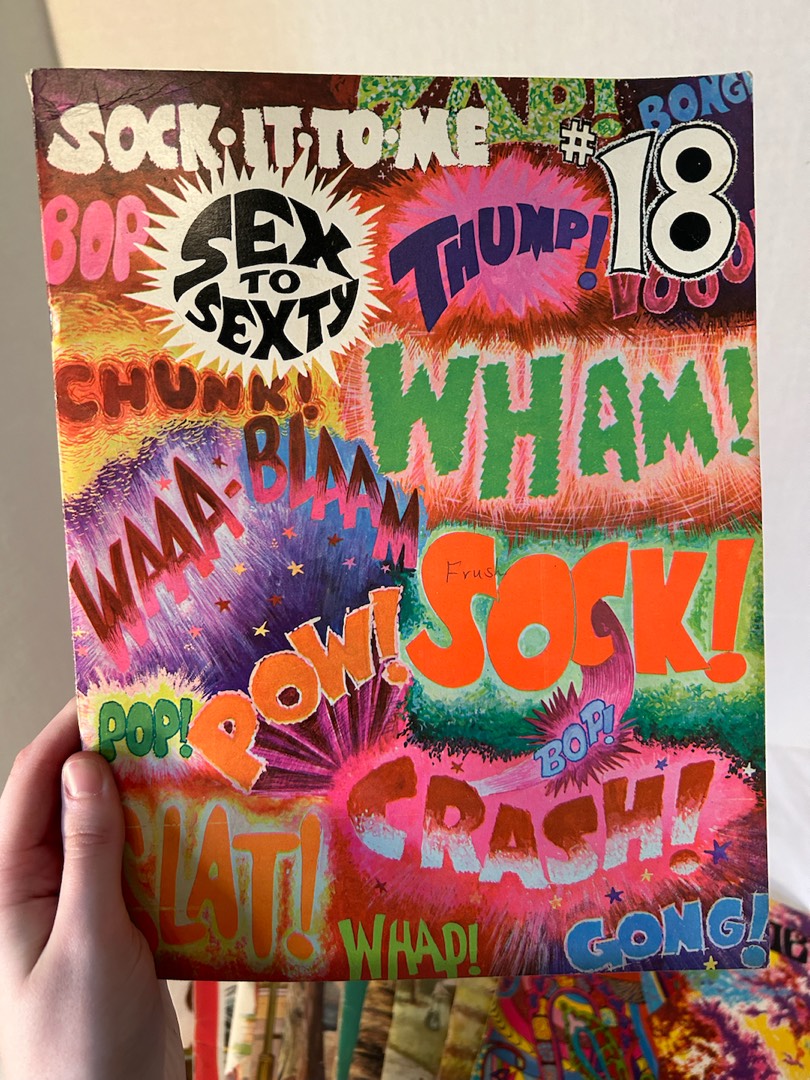 ZAP!
BONG
SOCK·IT·TO·ME
#18
BOP
SEX
TO
SEXTY
THUMP!
VOOO
CHUNK!
WHAM!
WAAA-BLAAM
SOCK!
Frush
POW!
POP!
BOP!
CRASH!
SLAT!
WHAP!
GONG!